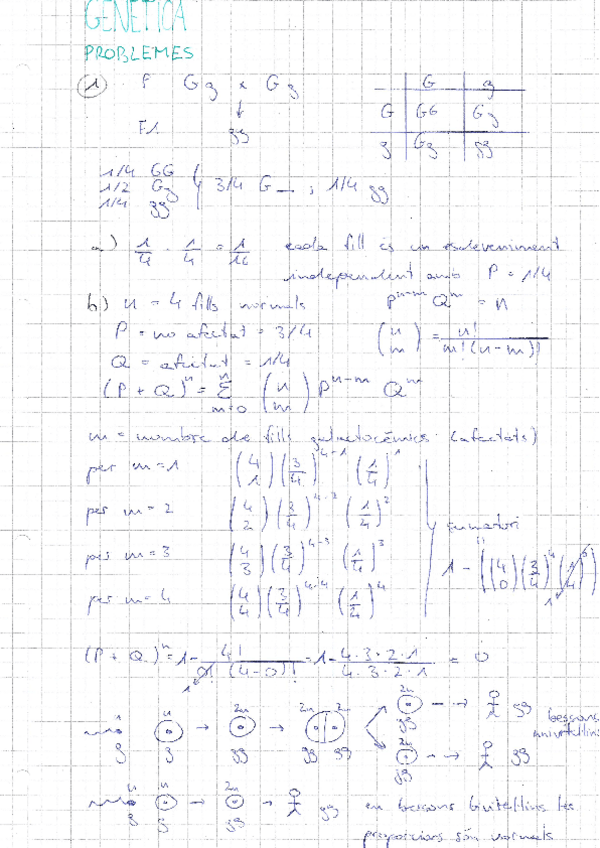 GENÈTICA
PROBLEMES
1 P Gg x Gg
G g
G GG Gg
g Gg gg
F1 gg
1/4 GG
1/2 Gg
1/4 gg
3/4 G_ ; 1/4 gg
a) 1/4 · 1/4 = 1/16 cada fill és un esdeveniment
independent amb P = 1/4
b) n = 4 fills normals P^n-m Q^m = n
P = no afectat = 3/4 (n m) = n! / m!(n-m)!
Q = afectat = 1/4
(P + Q)^n = Σ^n m=0 (n m) P^n-m Q^m
m = nombre de fills galactocèmics (afectats)
per m = 1 (4 1) (3/4)^4-1 (1/4)^1
per m = 2 (4 2) (3/4)^4-2 (1/4)^2
per m = 3 (4 3) (3/4)^4-3 (1/4)^3
per m = 4 (4 4) (3/4)^4-4 (1/4)^4
sumatori
1 - ((4 0) (3/4)^4 (1/4)^0) 1
(P + Q)^n = 1 - 4! / 0! (4-0)! = 1 - 4·3·2·1 / 4·3·2·1 = 0
n n 2n 2n 2n 2n
g g gg gg gg gg gg
bessons
univitel·lins
2n
gg gg
n n 2n
g g gg gg en bessons bivitel·lins les
proporcions són normals